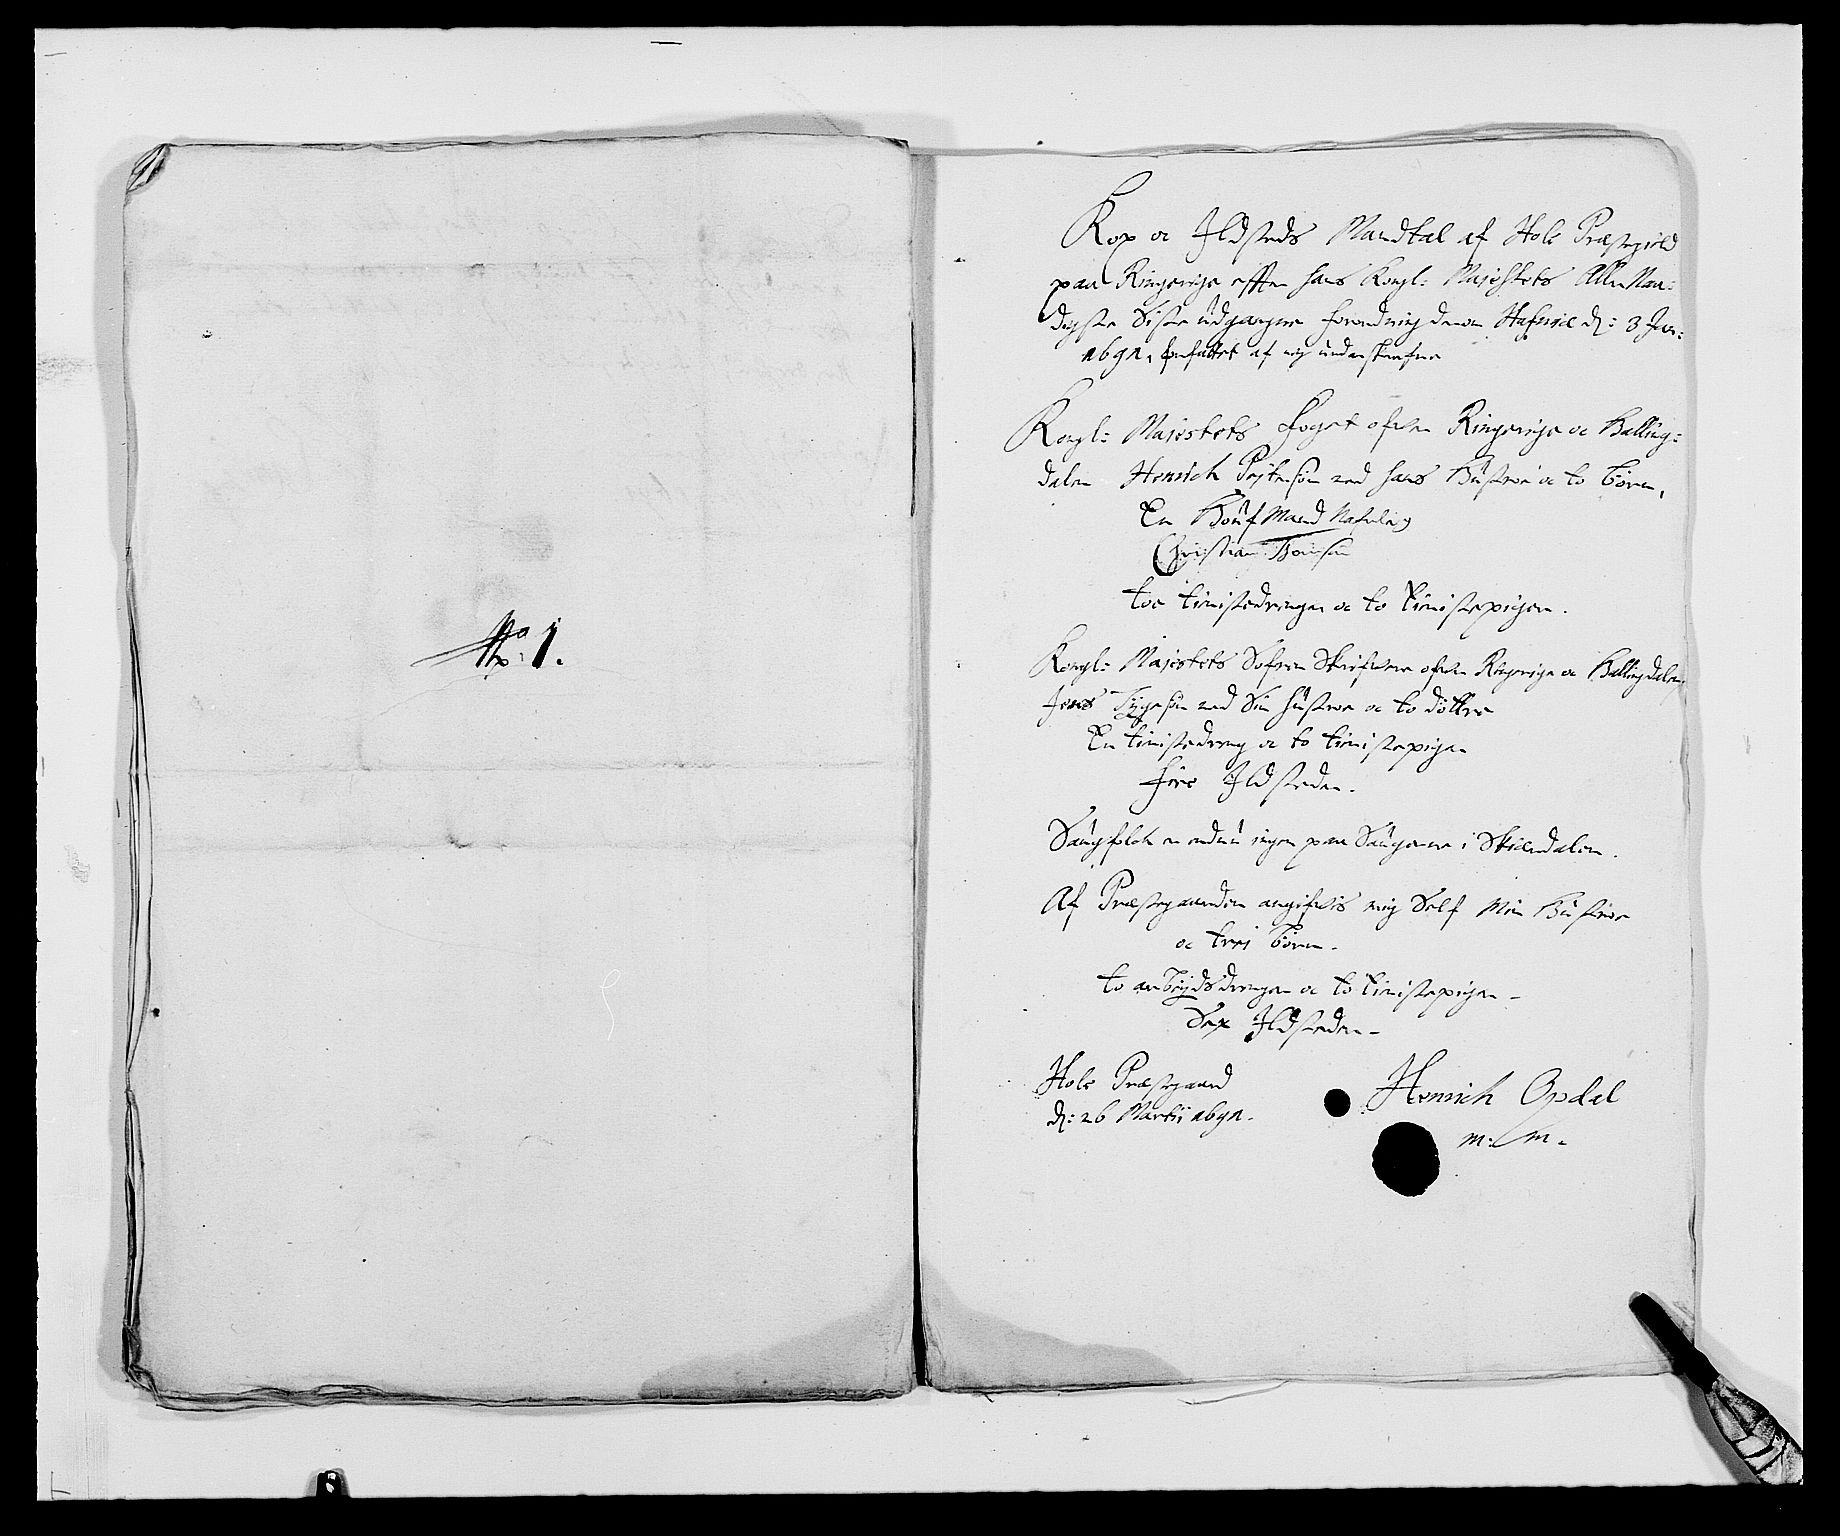 No: 1.
Kop oc Ildsteds Mandtal af Hole Præstegield
paa Ringerige effter hans Kongl: Majestets Aller Naa-
digste Siste udgangne forordning derom Hafniæ d: 3 Jan:
1691, forfattet af mig underskrefne
Kongl: Majestets Foget ofver Ringerige oc Halling-
dalen Henrich Pejtersøn med hans Hustroe oc to børn,
En Houf Mand Nafnlig
Christian
toe tienistedrenger oc to tienistepiger.
Kongl: Majestets Sofren Skrifvere ofver Ringerige oc Hallingdalen,
Jens Tygesøn med Sin hustroe oc to døttre
En tienistedreng oc to tienistepiger
fire Ildsteder.
Saugfolck er endnu ingen paa Saugerne i Skiærdalen.
Af Præstegaarden angifves mig Self Min Hustroe
oc trei børn.
to arbeydsdrenger oc to tienistepiger -
Sex Ildsteder -
Hole Præstgaard
d: 26 Martii 1691.
Henrich Opdal
m: m.